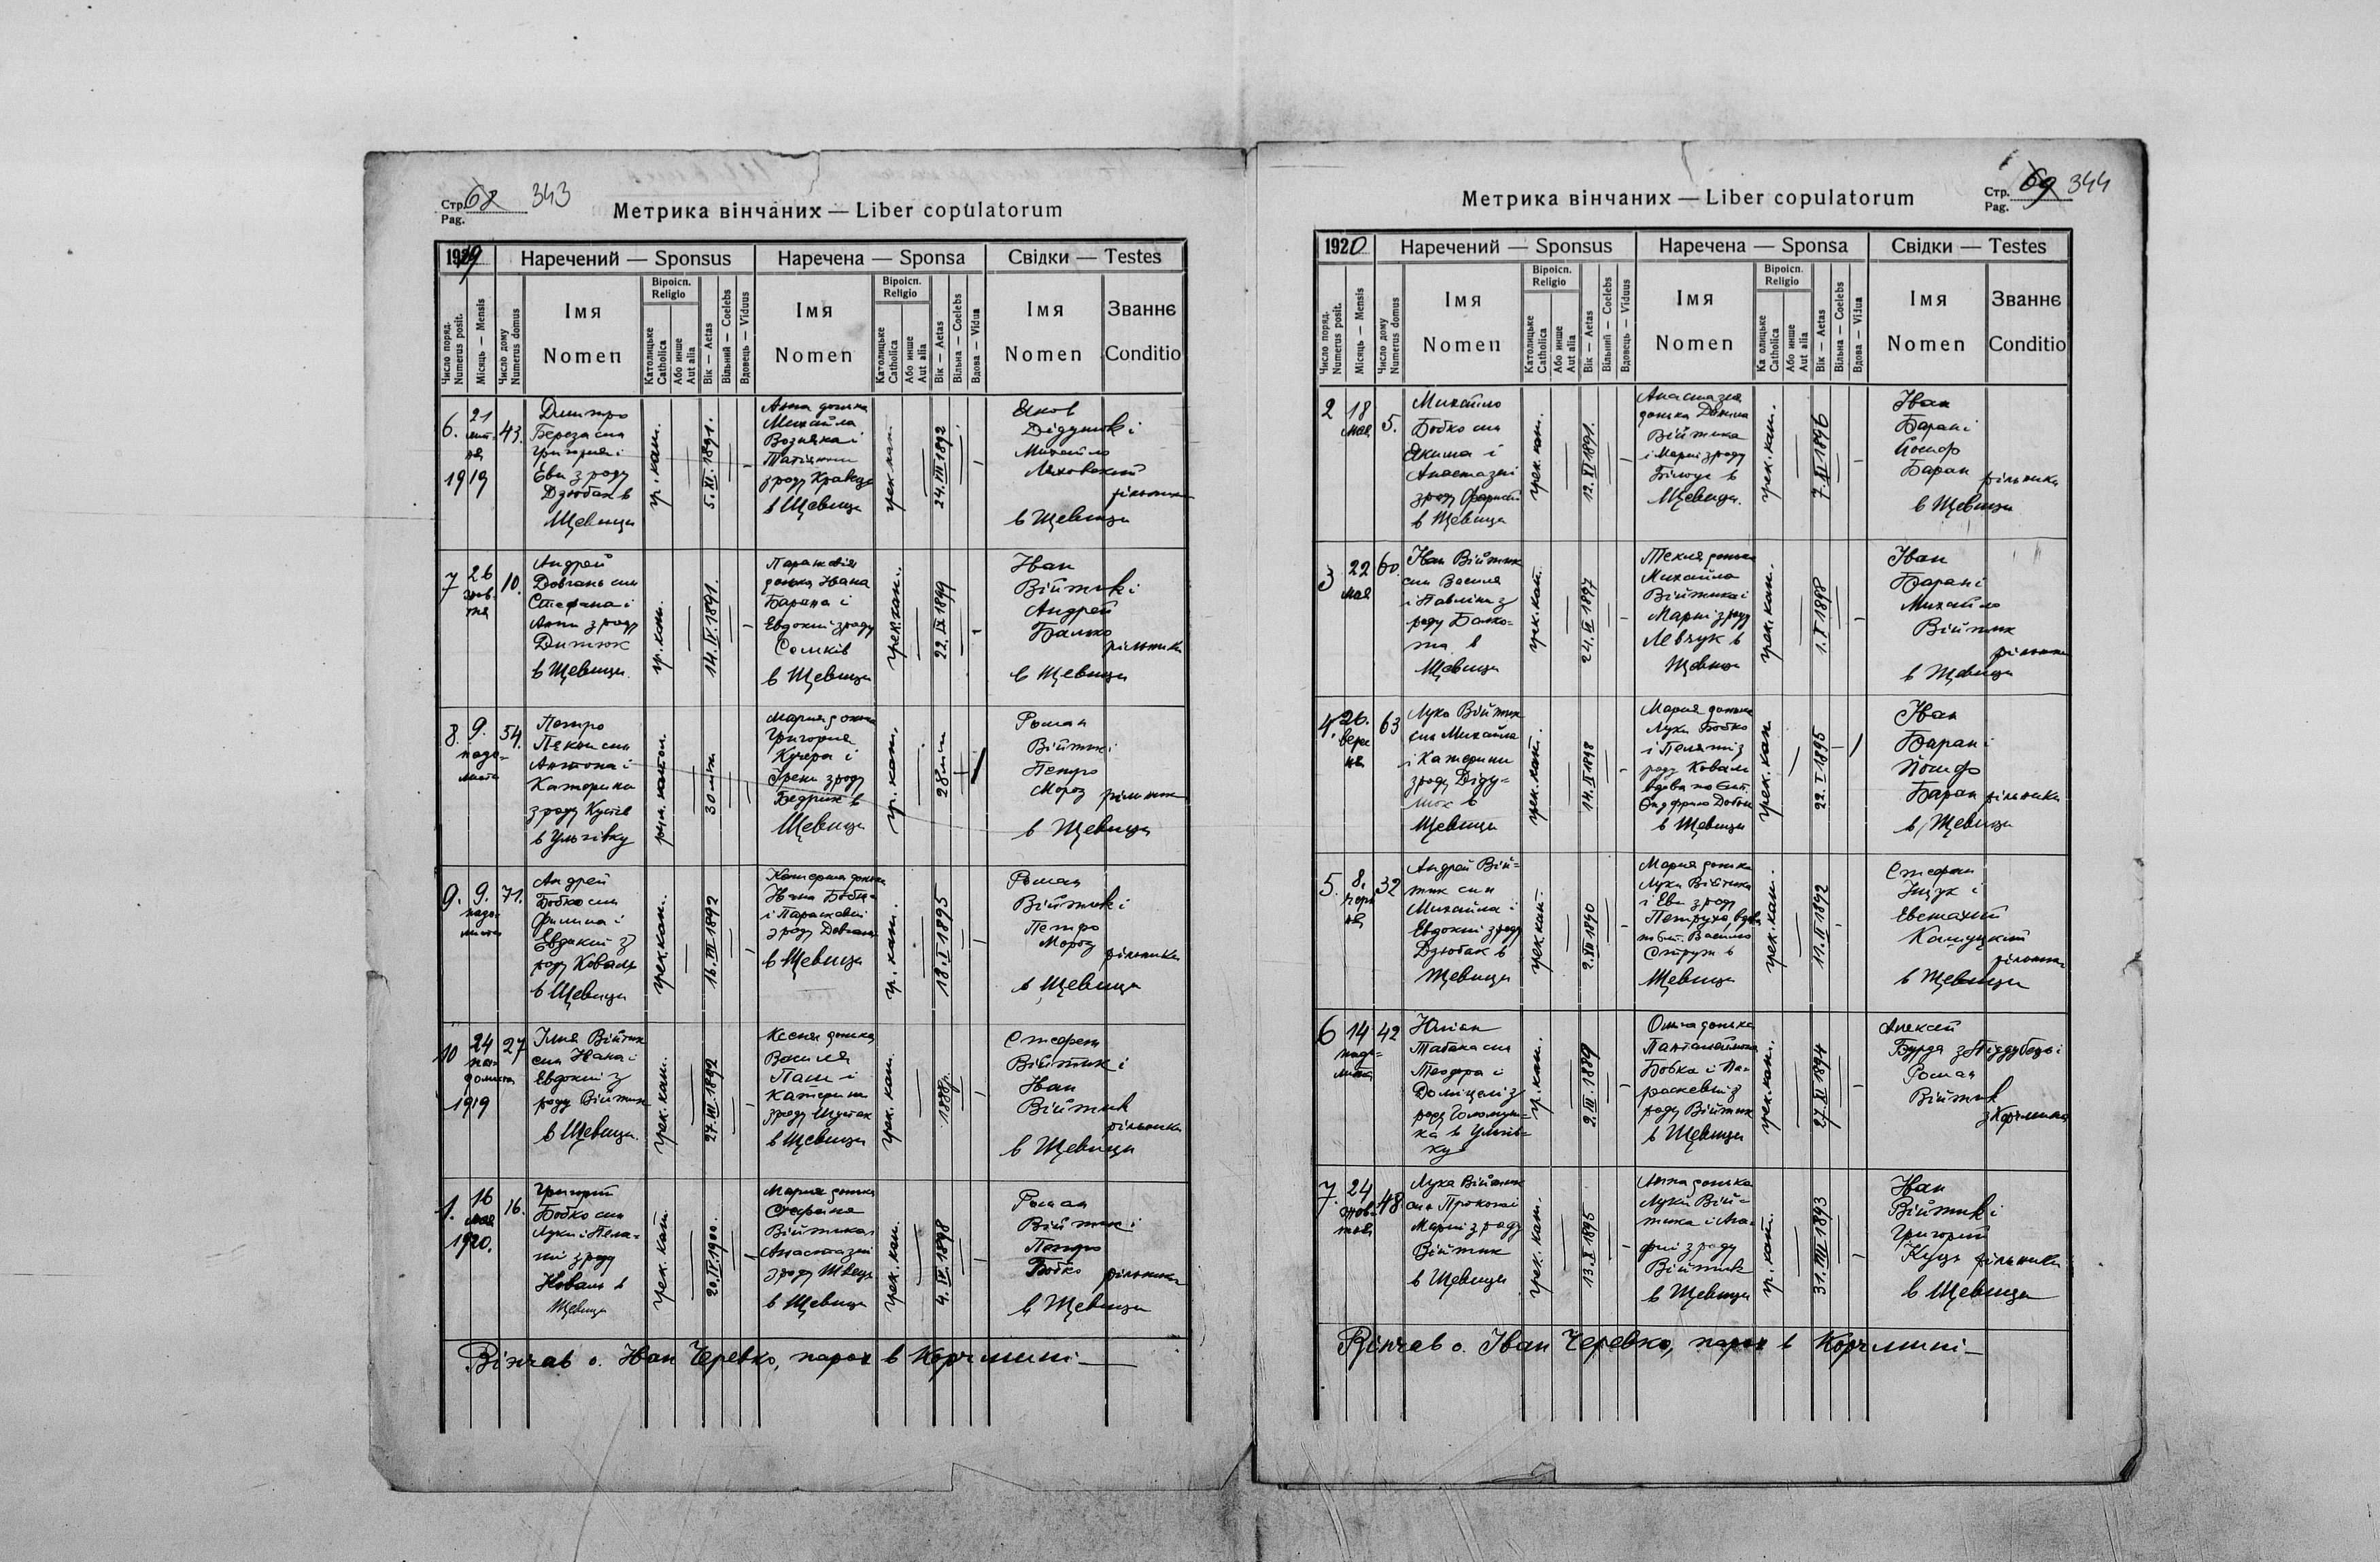 Стр. 68 343
Pag.
Метрика вінчаних — Liber copulatorum
1919
Наречений — Sponsus
Наречена — Sponsa
Свідки — Testes
Число поряд.
Numerus posit.
Місяць — Mensis
Число дому
Numerus domus
Імя
Nomen
Віроісп.
Religio
Католицьке
Catholica
Або инше
Aut alia
Вік — Aetas
Вільний — Coelebs
Вдовець — Viduus
Імя
Nomen
Віроісп.
Religio
Католицьке
Catholica
Або инше
Aut alia
Вік — Aetas
Вільна — Coelebs
Вдова — Vidua
Імя
Nomen
Званнє
Conditio
6.
21
1919
43.
Дмитро
Береза син
Григория і
Еви з роду
Дзюбак в
Щевици
гр. кат.
5. XI. 1891.
Анна донька
Михайла
Возняка і
з роду Кравець
в Щевици
грек. кат.
24. VIII 1892
Яков
Дідушок і
Михайло
Ляховский
рільники
в Щевици
7
26
жов-
тня
10.
Андрей
Довгань син
Стефана і
Анни з роду
в Щевици.
гр. кат.
14. IV. 1891.
Парасковія
донька Івана
Барана і
Евдокиї з роду
Сомків
в Щевици
грек. кат.
22. IX 1899
Іван
Війтик і
Андрей
рільники
в Щевици
8.
9.
падо-
листа
54.
Петро
син
Антона і
Катерини
з роду
в Ульгівку
30 літ
Мария донька
Григория
Кучера і
Ірени з роду
Бедрик в
Щевици
гр. кат.
28 літ
Роман
Війтик і
Петро
Мороз рільники
в Щевици
9.
9.
падо-
листа
71.
Андрей
Бобко син
Филипа і
Евдокиї з
роду Коваль
в Щевици
грек. кат.
16. VIII 1892
Катерина донька
Івана Бобка
і Параскевії
з роду Довгань
в Щевици
гр. кат.
18. I 1895
Роман
Війтик і
Петро
Мороз
рільники
в Щевици
10
24
па-
долиста
1919
27
Ілия Війтик
син Івана і
Евдокиї з
роду Війтик
в Щевици.
грек. кат.
27. VII. 1892
Ксеня донька
Василя
і
Катерини
з роду Шустак
в Щевици
грек. кат.
1888р.
Стефан
Війтик і
Іван
Війтик
рільники
в Щевици
1.
16
мая
1920.
16.
Григорий
Бобко син
Луки і Пела-
гії з роду
Коваль в
Щевици
грек. кат.
20. IV. 1900.
Мария донька
Стефана
Війтика і
Анастазиї
з роду Швець
в Щевици
грек. кат.
4. IV. 1898
Роман
Війтик і
Петро
Бобко рільники
в Щевици
Вінчав о. Іван Черевко, парох в Корчмині —
Стр. 69 344
Pag.
Метрика вінчаних — Liber copulatorum
1920
Наречений — Sponsus
Наречена — Sponsa
Свідки — Testes
Число поряд.
Numerus posit.
Місяць — Mensis
Число дому
Numerus domus
Імя
Nomen
Віроісп.
Religio
Католицьке
Catholica
Або инше
Aut alia
Вік — Aetas
Вільний — Coelebs
Вдовець — Viduus
Імя
Nomen
Віроісп.
Religio
Ка олицьке
Catholica
Або инше
Aut alia
Вік — Aetas
Вільна — Coelebs
Вдова — Vidua
Імя
Nomen
Званнє
Conditio
2
18
мая
5.
Михайло
Бобко син
Якима і
Анастазиї
з роду
в Щевици
грек. кат.
12. XI 1891.
Анастазия
донька Данила
Війтика
і Мариї з роду
в
Щевици.
грек. кат.
7. XI 1896
Іван
Баран і
Йосиф
Баран рільники
в Щевици
3
22
мая
60.
Іван Війтик
син Василя
і Павліни з
роду
в
Щевици
грек. кат.
24. VI 1897
Текля донька
Михайла
Війтика і
Мариї з роду
Левчук в
Щевици
грек. кат.
1. X 1898
Іван
Баран і
Михайло
Війтик
рільники
в Щевици
4.
26.
вере
ня
63
Лука Війтик
син Михайла
і Катерини
з роду Діду-
шок в
Щевици
грек. кат.
14. II 1898
Мария донька
Луки Бобко
і Пелягиї з
роду Коваль
вдова по бл.
в Щевици
грек. кат.
22. I 1895
Іван
Баран і
Йосиф
Баран рільники
в Щевици
5.
8.
32
Андрей Вій-
тик син
Михайла і
Евдокиї з роду
Дзюбак в
Щевици
грек. кат.
2. XII 1890
Мария донька
Луки Війтика
і Еви з роду
Петруха, вдова
по бл. Василю
в
Щевици
грек. кат.
11. II 1892
Стефан
Іщук і
Евстахий
рільники
в Щевици
6
14
падо-
листа
42
Юлиан
Табака син
Теодора і
з
роду
ка в Ульгів-
ку
гр. кат.
2. III. 1889
Ольга донька
Пантелеймона
Бобка і Па-
раскевиї з
роду Війтик
в Щевици
грек. кат.
27. XI 1894
Алексей
Бурда з Піддубець і
Роман
Війтик
з Корчмина
7.
24
жов-
тня
48
Лука Війтик
син Прокопа і
Мариї з роду
Війтик
в Щевици
грек. кат.
13. X 1895
Анна донька
Луки Вій-
тика і Ма-
рії з роду
Війтик
в Щевици
гр. кат.
31. VIII 1893
Іван
Війтик і
Григорий
Куць рільники
в Щевици
Вінчав о. Іван Черевко, парох в Корчмині —